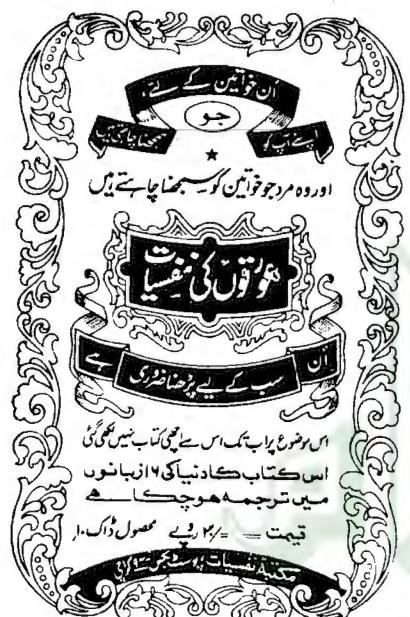 اُن خواتین کے لئے،
جو
اپنے آپ کو سمجھنا چاہتی ہیں
★
اور وہ مرد جو خواتین کو سمجھنا چاہتے ہیں
عورتوں کی نفسیات
اُن سب کے لیے پڑھنا ضروری ہے
اس موضوع پر اب تک اس سے اچھی کتاب نہیں لکھی گئی
اس کتاب کا دنیا کی ۱۶ زبانوں
میں ترجمہ ہو چکا ہے
قیمت = /= روپے محصول ڈاک ۱۰
مکتبۂ نفسیات پوسٹ بکس کراچی